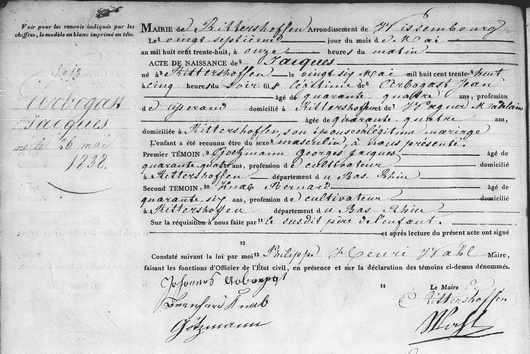 Voir pour les renvois indiqués par les
chiffres, le modèle en blanc imprimé en tête.
Arbogast
Jacques
né le 26 mai
1838.
MAIRIE de Rittershoffen Arrondissement de Wissembourg
Le vingt septième jour du mois de Mai
an mil huit cent trente-huit, à onze heures du matin
ACTE DE NAISSANCE de Jacques
né à Rittershoffen le vingt six Mai mil huit cent trente huit
cinq heures du soir fils légitime de Arbogast Jean
âgé de quarante quatre ans, profession
de domicilié à Rittershoffen et de Wagner Madelaine
âgée de quarante quatre ans,
domiciliée à Rittershoffen, son épouse en légitime mariage
L'enfant a été reconnu être du sexe masculin, à nous présenté
Premier TÉMOIN Götzmann Georges Jacques âgé de
quarante quatre ans, profession de cultivateur domicilié
à Rittershoffen département du Bas Rhin
Second TÉMOIN Knab Bernard âgé de
quarante six ans, profession de cultivateur domicilié
à Rittershoffen département du Bas Rhin
Sur la réquisition à nous faite par le susdit père de l'enfant.
et après lecture du présent acte ont signé
12
Constaté suivant la loi par moi Philippe Henri Wahl Maire,
faisant les fonctions d'Officier de l'État civil, en présence et sur la déclaration des témoins ci-dessus dénommés.
Le Maire
Johannes Arbogast
Bernhard Knab
Götzmann
14 C Rittershoffen
Wahl